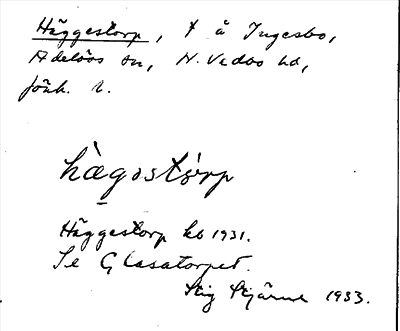 Häggestorp, t å Ingesbo,
Adelövs sn, N. Vedbo hd,
Jönk. l.
hàgostórp
Häggestorp kb 1931.
Se Glasatorpet.
Stig Stjärne 1933.